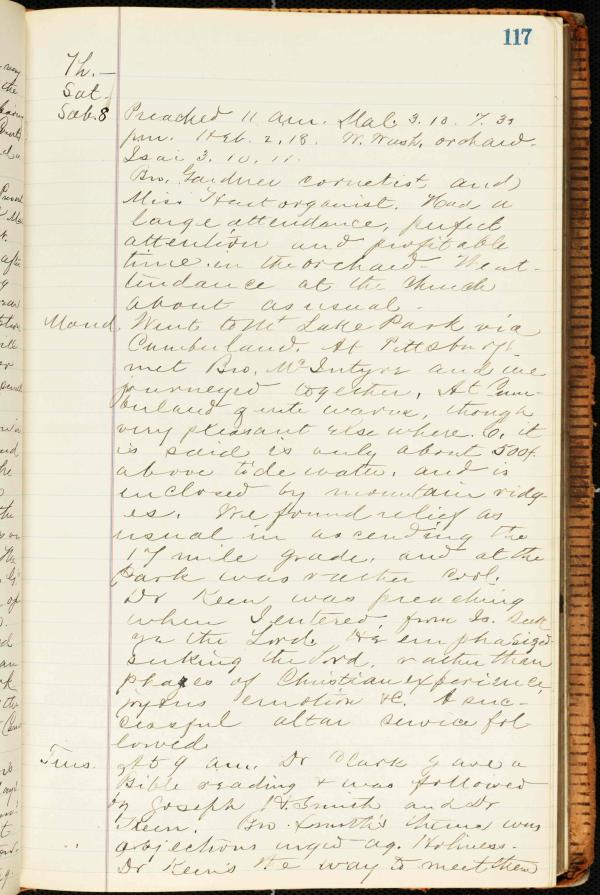 117
Th. —
Sat.
Sab. 8 Preached 11 am. Mal. 3. 10. 7. 30
pm. Heb. 2, 18. W. Wash, orchard.
Isai 3. 10, 11.
Bro. Gardner cornetist and
Miss Hart organist. Had a
large attendance, perfect
attention and profitable
time in the orchard — We at-
tendance at the Church
about as usual.
Mond. Went to Mt Lake Park via
Cumberland. At Pittsburgh
met Bro. McIntyre and we
journeyed together. At Cum-
berland quite warm, though
very pleasant elsewhere. C, it
is said is only about 500 f.
above tide water, and is
enclosed by mountain ridg-
es. We found relief as
usual in ascending the
17 mile grade, and at the
park was rather cool.
Dr Keen was preaching
when I entered, from Is. Seek
ye the Lord. He emphasized
seeking the Lord, rather than
phases of Christian experience,
joyous emotion &c. A suc-
cessful altar service fol
lowed.
Tues. At 9 am. Dr Clark gave a
Bible reading & was followed
by Joseph H Smith and Dr
Keen. Bro. Smith's theme was
objections urged ag. Holiness.
Dr Keen's the way to meet them